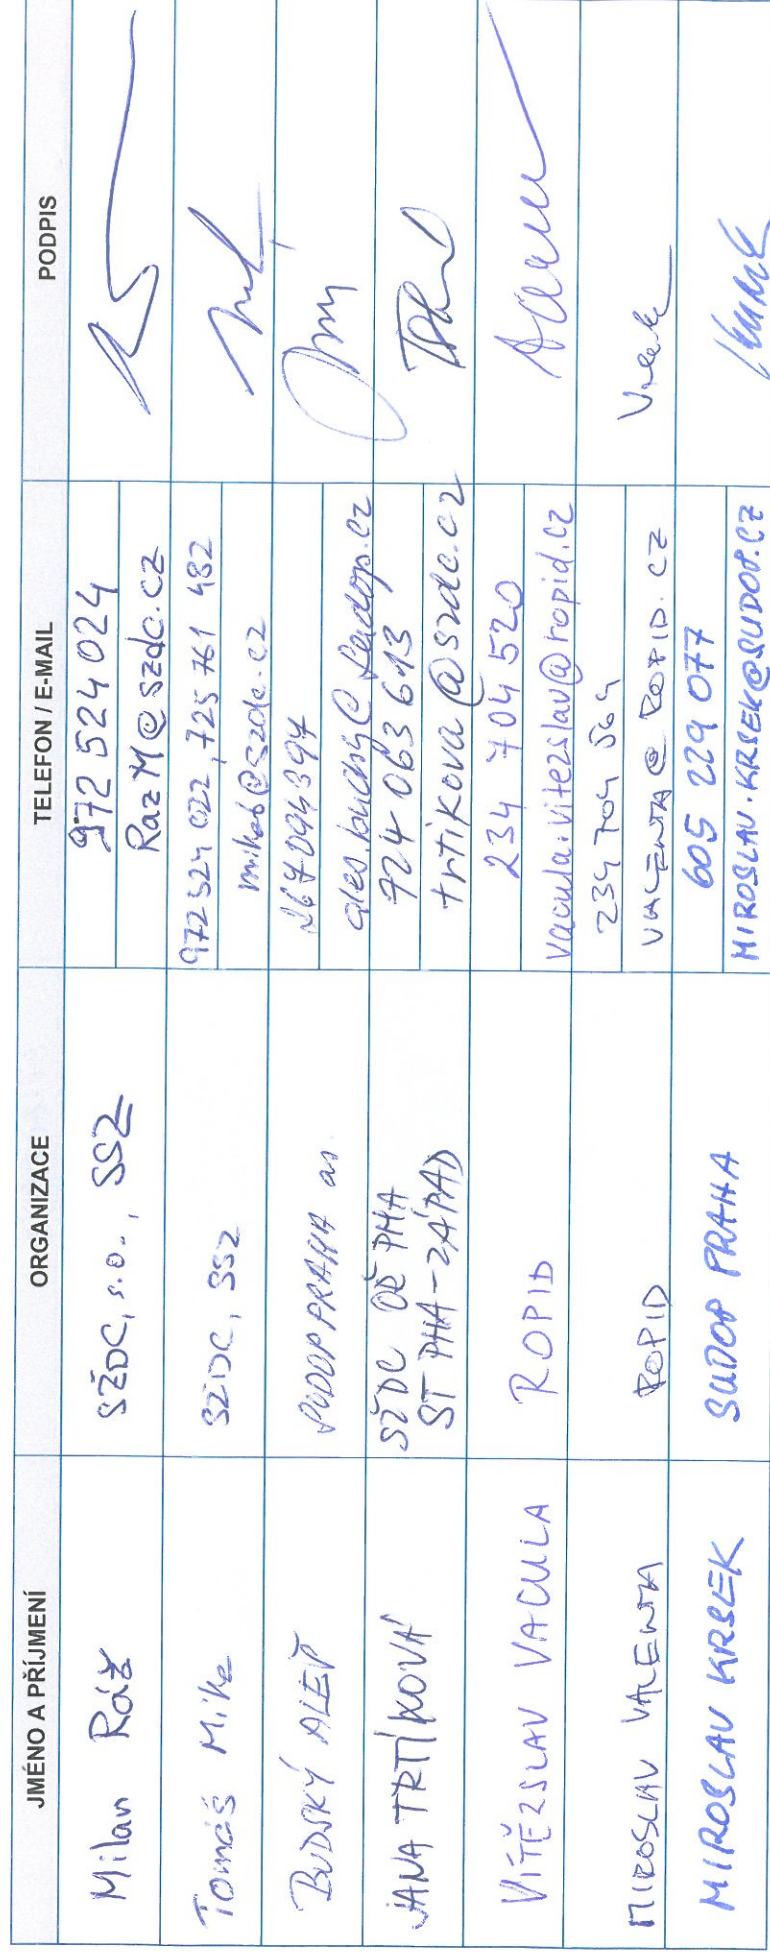 JMÉNO A PŘÍJMENÍ ORGANIZACE TELEFON / E-MAIL PODPIS
Milan Ráž SŽDC, s.o., SSZ 972 524 024
RazM@szdc.cz
Tomáš Mika SŽDC, SSZ 972 524 022, 725 761 482
mikat@szdc.cz
BUDSKÝ ALEŠ SUDOP PRAHA a.s. 267 094 394
SŽDC OŘ PHA
JANA TRTÍKOVÁ ST PHA-ZÁPAD 724 063 613
trtikova@szdc.cz
VÍTĚZSLAV VACULA ROPID 234 704 520
vacula.vitezslav@ropid.cz
MIROSLAV VALENTA ROPID 234 704 564
VALENTA@ROPID.CZ
MIROSLAV KRSEK SUDOP PRAHA 605 229 077
MIROSLAV.KRSEK@SUDOP.CZ